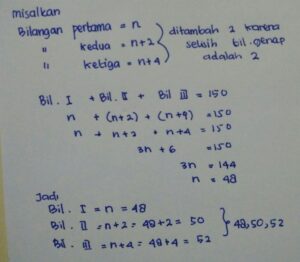 misalkan
Bilangan pertama = n
" kedua = n+2
" ketiga = n+4
} ditambah 2 karena
selisih bil. genap
adalah 2
Bil. I + Bil. II + Bil III = 150
n + (n+2) + (n+4) = 150
n + n+2 + n+4 = 150
3n + 6 = 150
3n = 144
n = 48
Jadi
Bil. I = n = 48
Bil. II = n+2 = 48+2 = 50
Bil. III = n+4 = 48+4 = 52
} 48, 50, 52